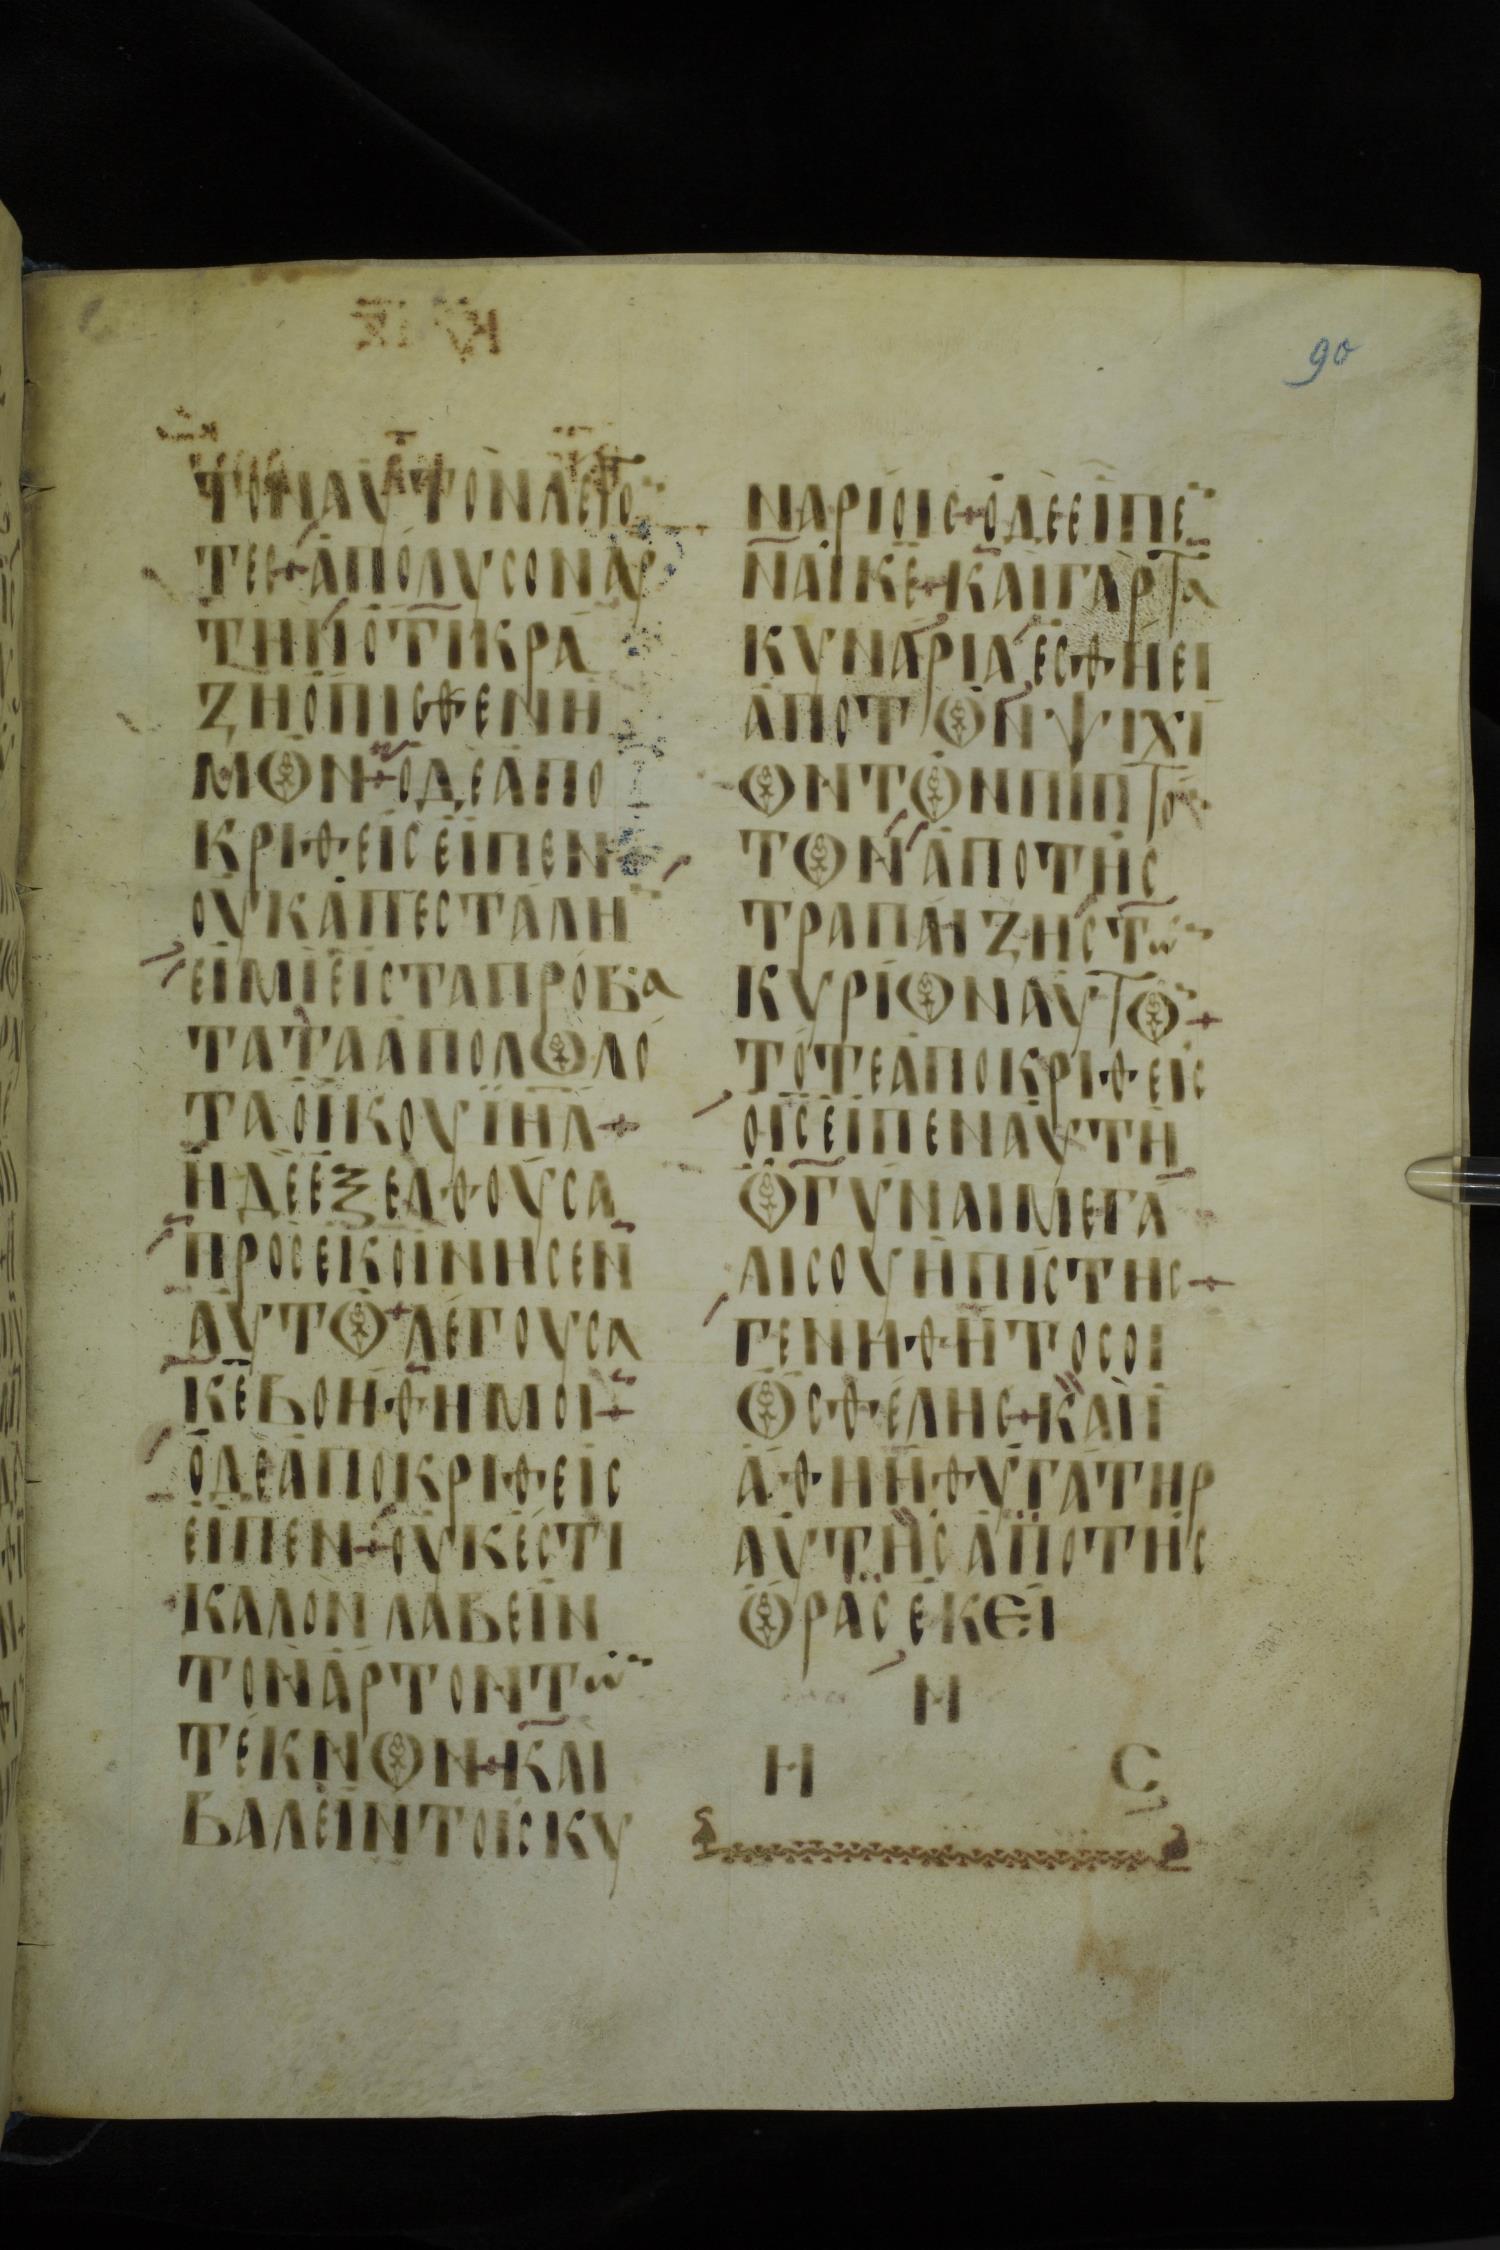 90
ΤΟΝΑΥΤΟΝΛΕΓΟ
ΤΕΣ+ΑΠΟΛΥΣΟΝΑΥ
ΤΗΝΟΤΙΚΡΑ
ΖΗΟΠΙΣΘΕΝΗ
ΜΩΝ+ΟΔΕΑΠΟ
ΚΡΙΘΕΙΣΕΙΠΕΝ+
ΟΥΚΑΠΕΣΤΑΛΗ
ΕΙΜΙΕΙΣΤΑΠΡΟΒΑ
ΤΑΤΑΑΠΟΛΩΛΟ
ΤΑΟΙΚΟΥΙΗΛ+
ΗΔΕΕΞΕΛΘΟΥΣΑ
ΠΡΟΣΕΚΟΙΝΗΣΕΝ
ΑΥΤΩ+ΛΕΓΟΥΣΑ
ΚΕΒΟΗΘΗΜΟΙ+
ΟΔΕΑΠΟΚΡΙΘΕΙΣ
ΕΙΠΕΝ+ΟΥΚΕΣΤΙ
ΚΑΛΟΝΛΑΒΕΙΝ
ΤΟΝΑΡΤΟΝΤω
ΤΕΚΝΩΝ+ΚΑΙ
ΒΑΛΕΙΝΤΟΙΣΚΥ
ΝΑΡΙΟΙΣ+ΟΔΕΕΙΠΕ
ΝΑΙΚΕ+ΚΑΙΓΑΡΤΑ
ΚΥΝΑΡΙΑΕΣΘΗΕΙ
ΑΠΟΤΩΝΨΙΧΙ
ΩΝΤΩΝΠΙΠΤΟ
ΤΩΝΑΠΟΤΗΣ
ΤΡΑΠΑΙΖΗΣΤω
ΚΥΡΙΩΝΑΥΤΩ+
ΤΟΤΕΑΠΟΚΡΙΘΕΙΣ
ΟΙΣΕΙΠΕΝΑΥΤΗ
ΩΓΥΝΑΙΜΕΓΑ
ΛΙΣΟΥΗΠΙΣΤΗΣ+
ΓΕΝΗΘΗΤΟΣΟΙ
ΩΣΘΕΛΗΣ+ΚΑΙΙ
ΑΘΗΗΘΥΓΑΤΗΡ
ΑΥΤΗΣΑΠΟΤΗΣ
ΩΡΑΣΕΚΕΙ
Ν
Η Σ